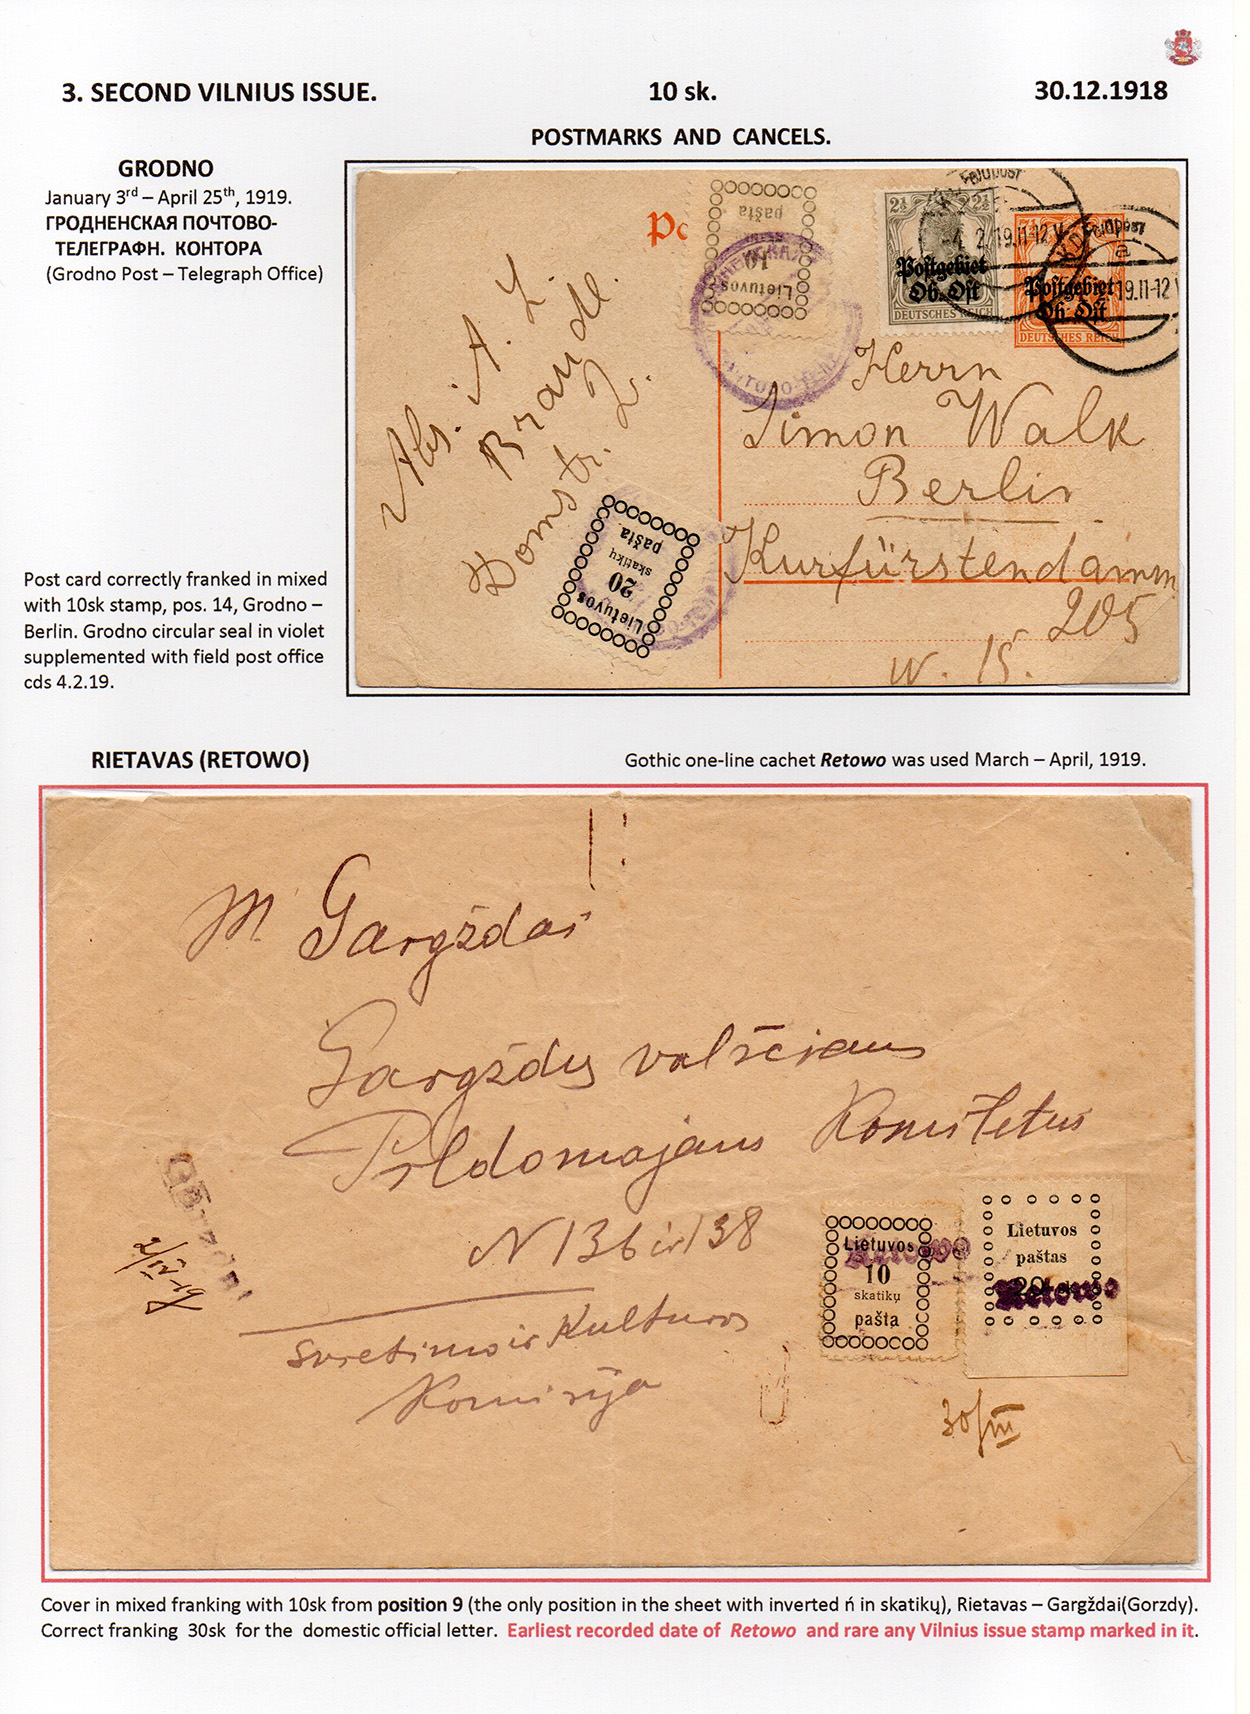 3. SECOND VILNIUS ISSUE. 10 sk. 30.12.1918
POSTMARKS AND CANCELS.
GRODNO
January 3rd – April 25th, 1919.
ГРОДНЕНСКАЯ ПОЧТОВО-
ТЕЛЕГРАФН. КОНТОРА
(Grodno Post – Telegraph Office)
Post card correctly franked in mixed
with 10sk stamp, pos. 14, Grodno –
Berlin. Grodno circular seal in violet
supplemented with field post office
cds 4.2.19.
Po
pašta
10
Lietuvos
2½ 2½
Postgebiet
Ob. Ost
DEUTSCHES REICH
7½
Postgebiet
Ob. Ost
DEUTSCHES REICH
Feldpost
2.19.11-12V
Feldpost
a
19.11-12V
Abs. A. L.
Braude.
Domstr. 2.
pašta
skatikų
20
Lietuvos
Herrn
Simon Walk
Berlin
Kurfürstendamm
205
W. 15.
RIETAVAS (RETOWO)
Gothic one-line cachet Retowo was used March – April, 1919.
M Gargždas
Gargždų valsčiaus
Pildomajam Komitetui
N 136 ir 138
Svietimo ir Kulturos
Komisija
2/IV-19
Lietuvos
10
skatikų
pašta
Retowo
Lietuvos
paštas
20
Retowo
30/III
Cover in mixed franking with 10sk from position 9 (the only position in the sheet with inverted ń in skatikų), Rietavas – Gargždai(Gorzdy).
Correct franking 30sk for the domestic official letter. Earliest recorded date of Retowo and rare any Vilnius issue stamp marked in it.